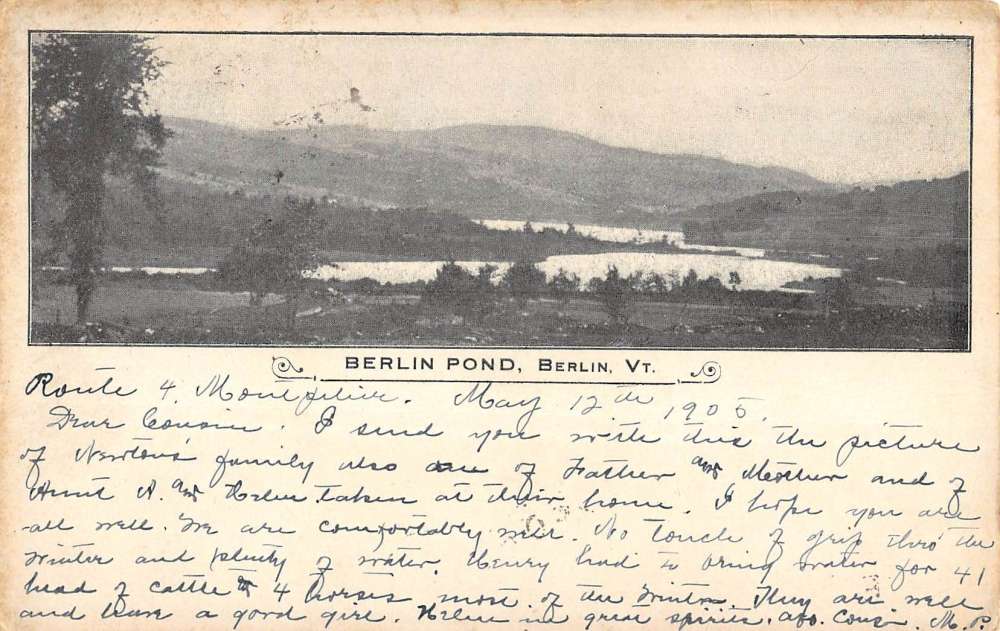 BERLIN POND, BERLIN, VT.
Route 4, Montpelier. May 12th, 1905.
Dear Cousin. I send you with this the picture
of Newton's family also one of Father and Mother and of
Aunt A. and Helen taken at their home. I hope you are
all well. We are comfortably well. No touch of grip thro' the
winter and plenty of water. Henry had to bring water for 41
head of cattle & 4 horses most of the winter. They are well
and have a good girl. Helen in great spirits. Cousin. M. P.